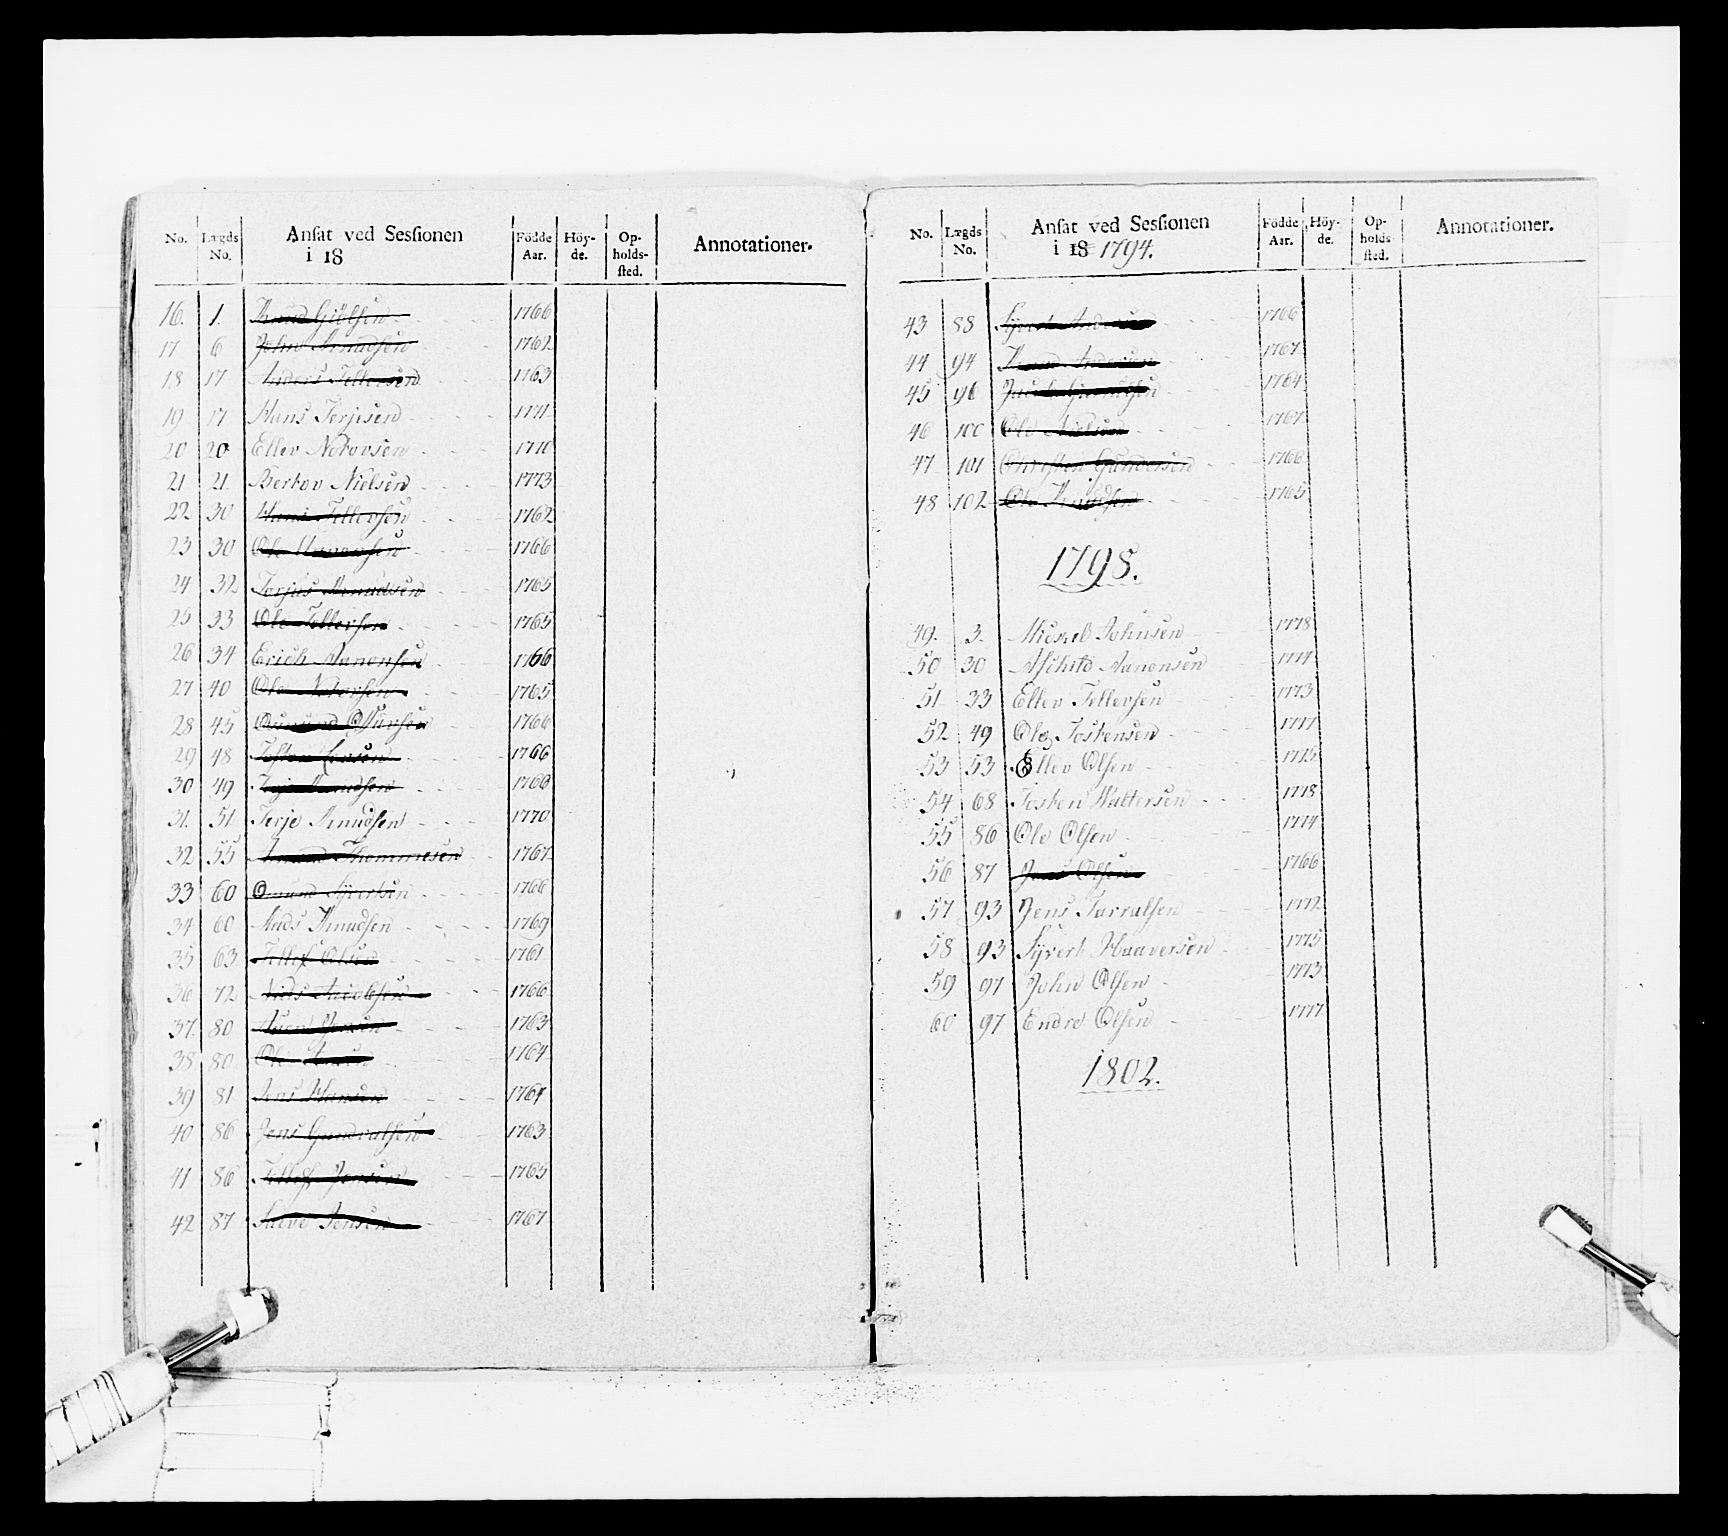 No. Lægds No. Ansat ved Sessionen i 18 Födde Aar. Höy-de. Op-holds-sted. Annotationer.
16. 1. Knud 1766
17 6 John Knudsen 1762
18 17 Anders Tellersen 1763
19 17 Hans Terjesen 1771
20 20 Ellev Notovsen 1770
21 21 Berton Nielsen 1773
22 30 Hans Tellevsen 1762
23 30 Ole Aanonsen 1766
24 32 Torjus Knudsen 1765
25 33 Ole Tellevsen 1765
26 34 Erich Aanonsen 1766
27 40 Ole 1765
28 45 1766
29 48 1766
30 49 Terje Knudsen 1768
31. 51 Terje Knudsen 1770
32 55 Thommesen 1767
33 60 Omund Syvertsen 1766
34 60 Mads Knudsen 1769
35 63 Tellef Olsen 1761
36 72 Niels Jacobsen 1766
37. 80 1763
38 80 Ole 1764
39 81 Jens Hansen 1764
40 86 Jens Gundvalsen 1763
41 86 Tellef Jensen 1765
42 87 Salve Jensen 1767
No. Lægds No. Ansat ved Sessionen i 18 1794. Födde Aar. Höy-de. Op-holds-sted. Annotationer.
43 88 Syvert Andersen 1766
44 94 Knud Andersen 1767
45 96 1764
46 100 Ole Nielsen 1767
47 101 Christen Gundersen 1766
48 102 Ole Knudsen 1765
1798.
49. 3. Mickel Johnsen 1778
50 30 Aanonsen 1774
51 33 Ellev Tellevsen 1773
52 49 Ole Tostensen 1777
53 53 Ellev Olsen 1775
54 68 Tosten Halversen 1778
55 86 Ole Olsen 1774
56 87 Jens Olsen 1766
57 93 Jens Tarralsen 1772
58 93 Syvert Haaversen 1775
59 97 John Olsen 1773
60 97 Endre Olsen 1777
1802.